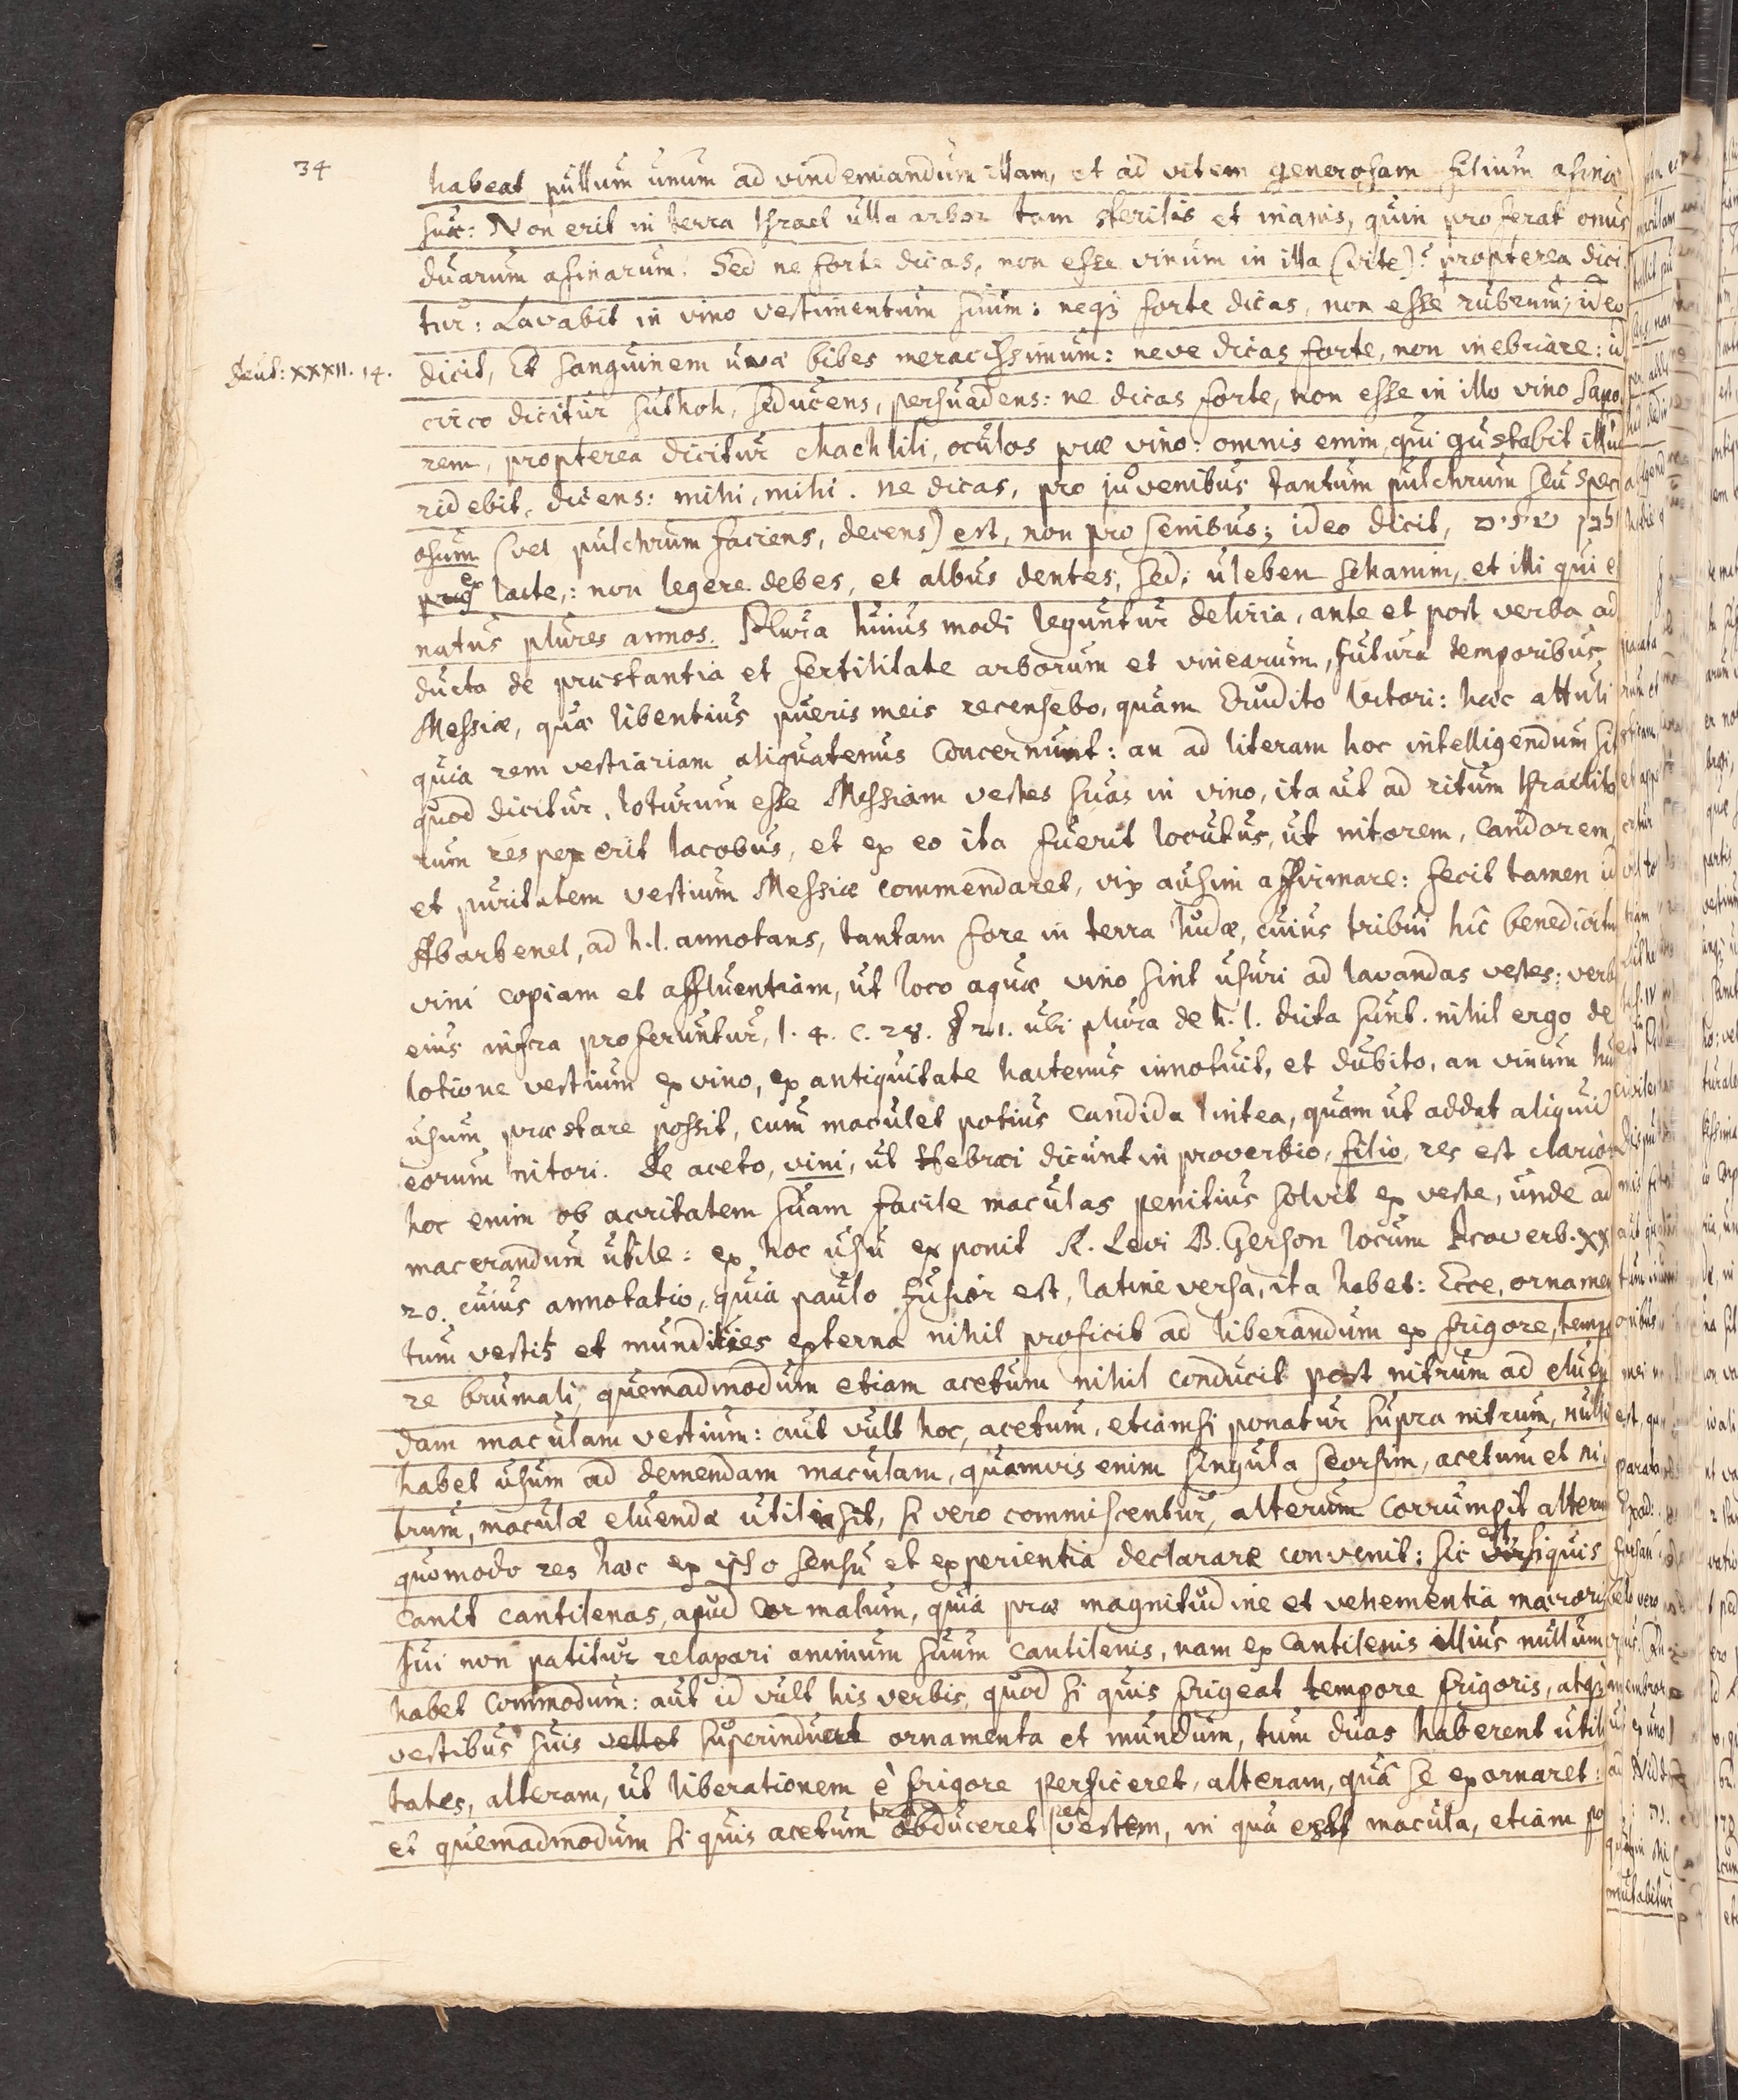 34
habeat pullum unum ad vindemiandum illam, et ad vitem generosam filium asinæ
suæ: Non erit in terra Israel ulla arbor tam sterilis et inanis, quin proferat onus
duarum asinarum. Sed ne forte dicas, non esse vinum in illa (vite)? propterea dici
tur: Lavabit in vino vestimentum suum: neqз forte dicas, non esse rubrum; ideo
Deut: XXXII. 14.
dicit, Et sanguinem uvæ bibes meracissimum: neve dicas forte, non inebriare: id
circo dicitur suthoh, seducens, persuadens: ne dicas forte, non esse in illo vino sapo
rem, propterea dicitur chachlili, oculos præ vino: omnis enim, qui gustabit illud
ridebit, dicens: mihi, mihi. ne dicas, pro juvenibus tantum pulchrum seu speci
osum (vel pulchrum faciens, decens) est, non pro senibus; ideo dicit, ולבן שנים
ex lacte,: non legere debes, et albus dentes, sed; uleben schanim, et illi qui e
natus plures annos. Plura huius modi leguntur deliria, ante et post verba ad
ducta de præstantia et fertilitate arborum et vinearum, futura temporibus
Messiæ, quæ libentius pueris meis recensebo, quàm Erudito Lectori: hæc attuli
quia rem vestiariam aliquatenus concernunt: an ad literam hoc intelligendum sit
quod dicitur, loturum esse Messiam vestes suas in vino, ita ut ad ritum Israelita
rum respexerit Iacobus, et ex eo ita fuerit locutus, ut nitorem, candorem,
et puritatem vestium Messiæ commendaret, vix ausim affirmare: fecit tamen id
Abarbenel, ad h.l. annotans, tantam fore in terra Iudæ, cuius tribui hîc benedicitur
vini copiam et affluentiam, ut loco aquæ vino sint usuri ad lavandas vestes: verba
eius infra proferuntur, l. 4. c. 28. § 21. ubi plura de h. l. dicta sunt. nihil ergo de
lotione vestium ex vino, ex antiquitate hactenus innotuit, et dubito, an vinum hunc
usum præstare possit, cum maculet potius candida lintea, quam ut addat aliquid
eorum nitori. De aceto, vini, ut Hebræi dicunt in proverbio, filio, res est clarior
hoc enim ob acritatem suam facile maculas penitius solvit ex veste, unde ad
macerandum utile: ex hoc usu exponit R. Levi B. Gerson locum Proverb. XX
20. cuius annotatio, quia paulo fusior est, latine versa, ita habet: Ecce, ornamen
tum vestis et mundities externa nihil proficit ad liberandum ex frigore, tempo
re brumali, quemadmodum etiam acetum nihil conducit post nitrum ad eluen
dam maculam vestium: aut vult hoc, acetum, etiamsi ponatur supra nitrum, nullum
habet usum ad demendam maculam, quamvis enim singula seorsim, acetum et ni,
trum, maculæ eluendæ utilia sit, si vero commiscentur, alterum corrumpit alterum
quomodo res hæc ex ipso sensu et experientia declarare convenit: sic est siquis
canit cantilenas, apud cor malum, quia præ magnitudine et vehementia mæroris
sui non patitur relaxari animum suum cantilenis, nam ex cantilenis illius nullum
habet commodum: aut id vult his verbis, quod si quis frigeat tempore frigoris, atqз
vestibus suis vellet superinduere ornamenta et mundum, tum duas haberent utili
tates, alteram, ut liberationem è frigore perficeret, alteram, quâ se exornaret:
et quemadmodum si quis acetum obduceret vestem, in qua est macula, etiam po